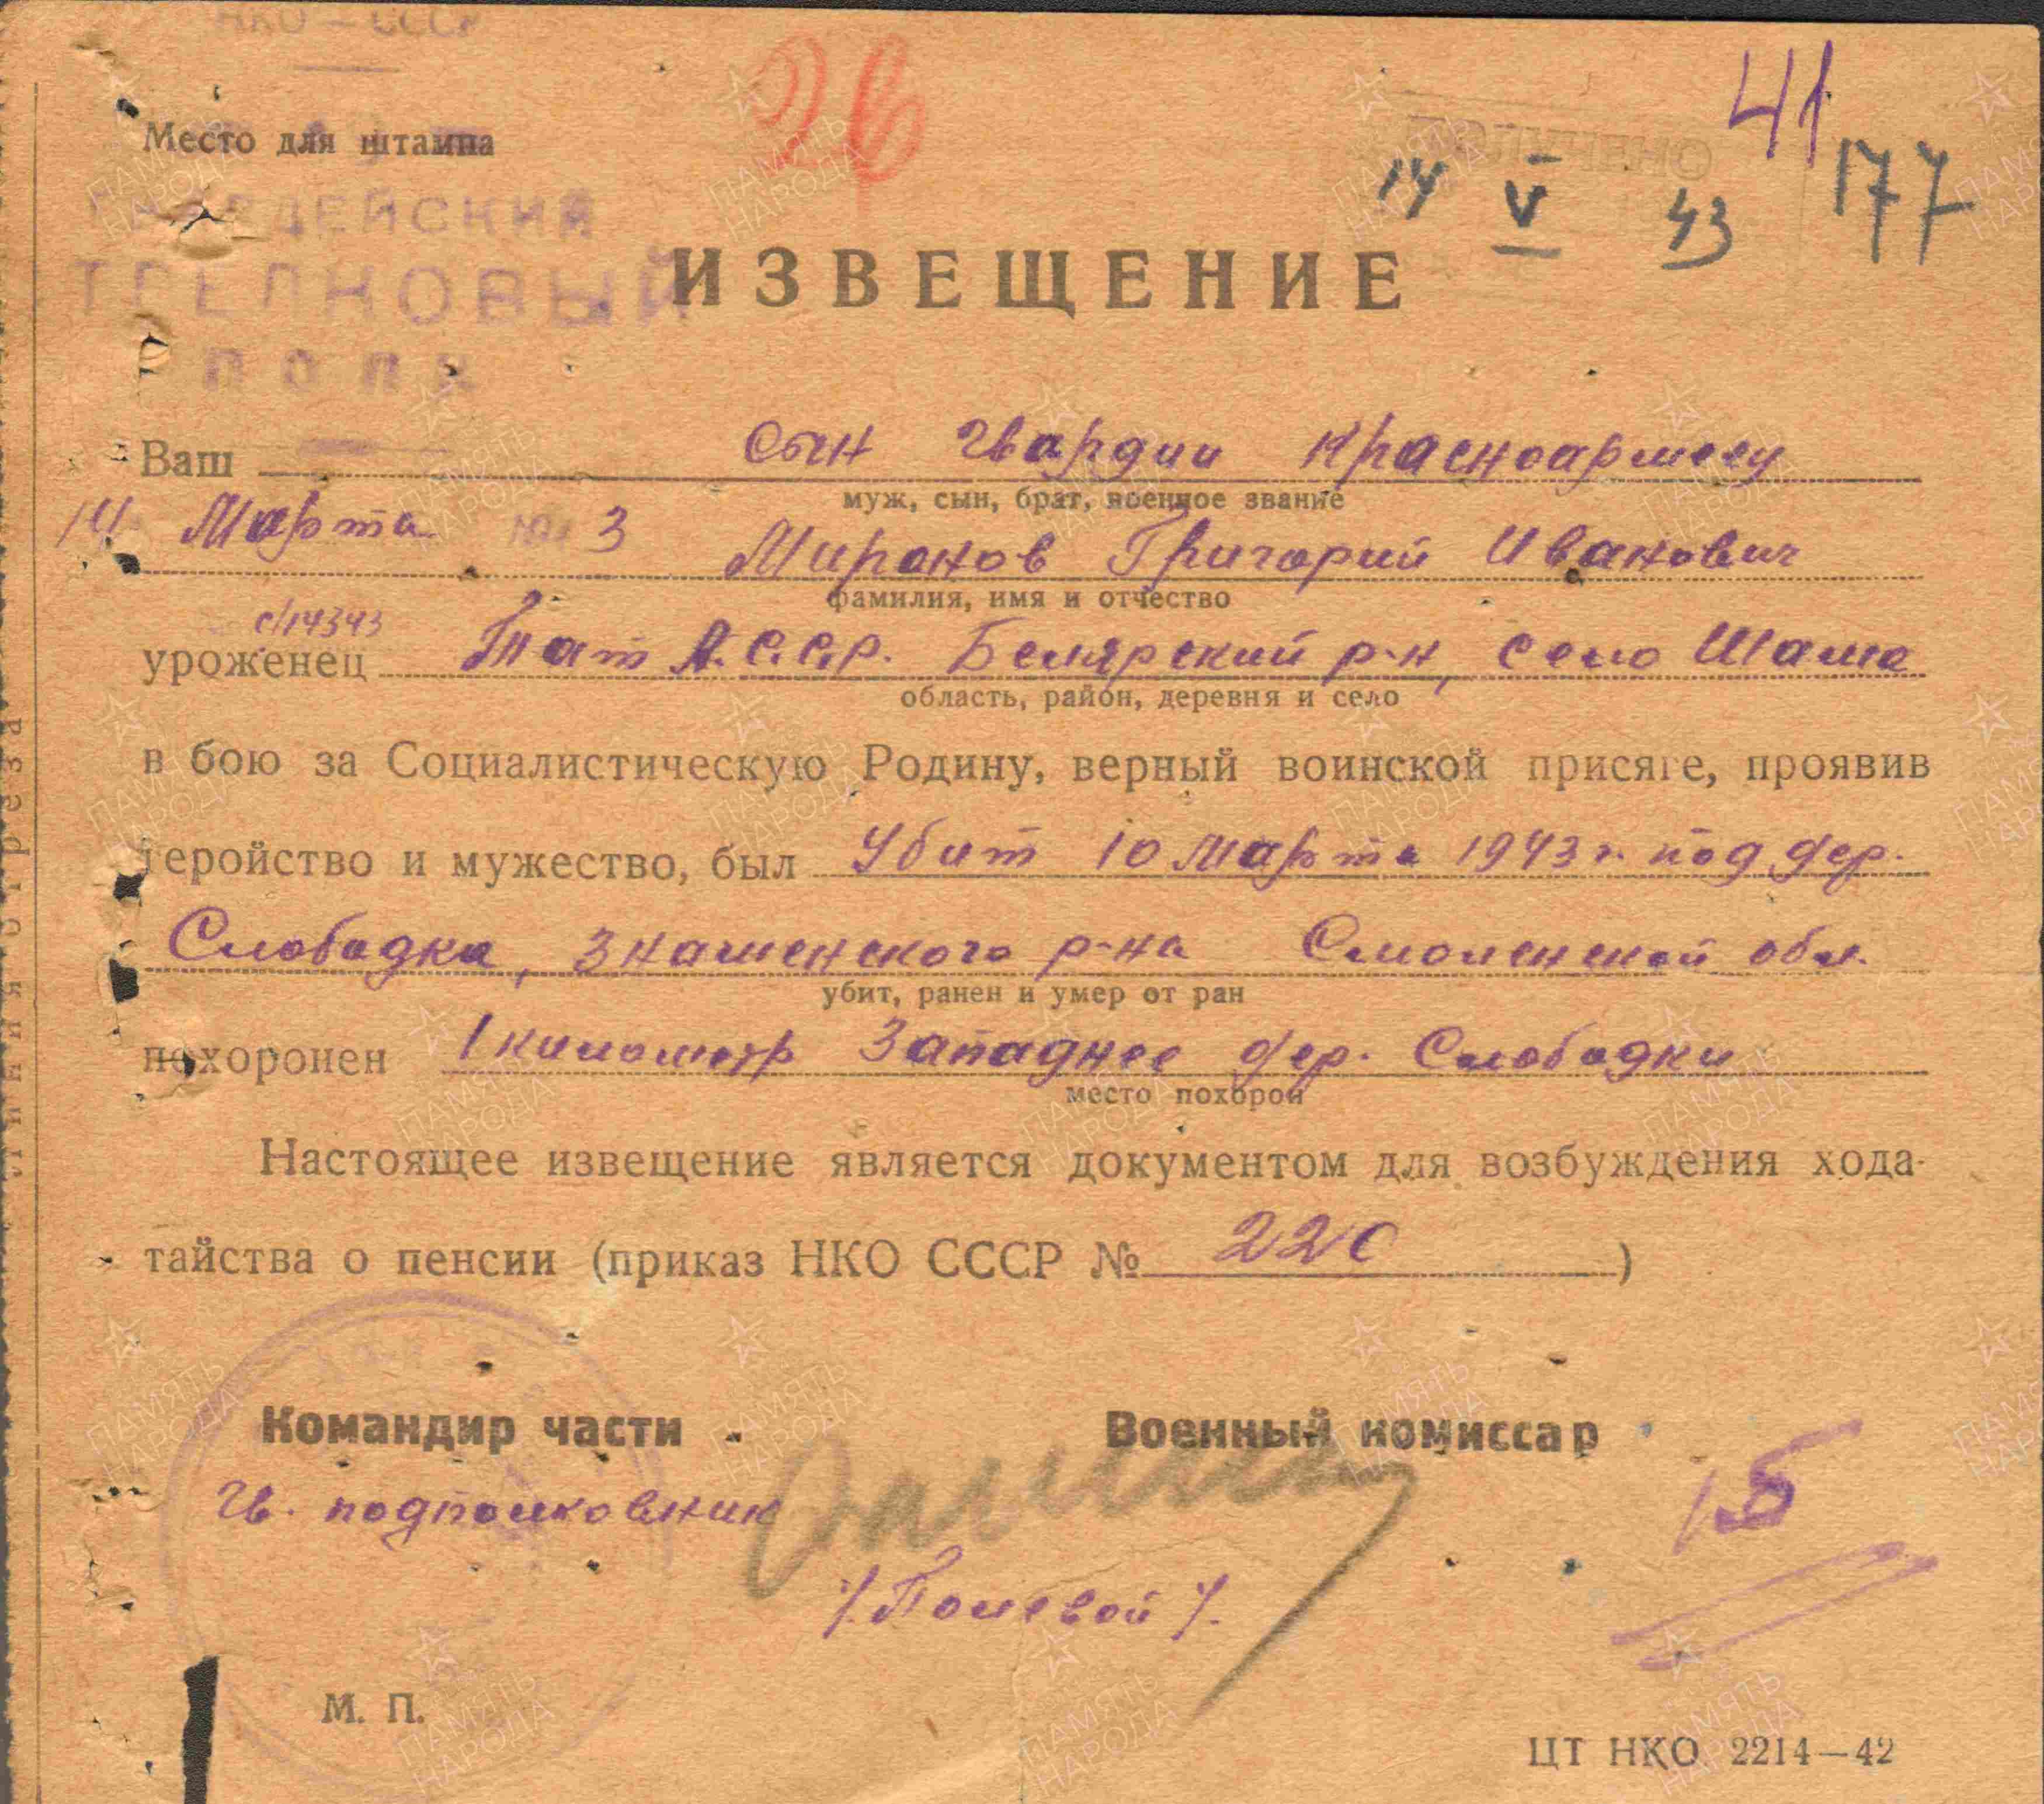 НКО – СССР
Место для штампа
26
41
ПОЛУЧЕНО
14 V 43
177
ГВАРДЕЙСКИЙ
СТРЕЛКОВЫЙ
ПОЛК
ИЗВЕЩЕНИЕ
Ваш сын гвардии красноармеец
муж, сын, брат, военное звание
14 Марта 3 Миронов Григорий Иванович
фамилия, имя и отчество
с/14343
уроженец Тат А.С.С.Р. Белярский р-н, село Шама
область, район, деревня и село
в бою за Социалистическую Родину, верный воинской присяге, проявив
геройство и мужество, был Убит 10 Марта 1943 г. под дер.
Слободка, Знаменского р-на Смоленской обл.
убит, ранен и умер от ран
похоронен 1 километр Западнее дер. Слободки
место похорон
Настоящее извещение является документом для возбуждения хода-
тайства о пенсии (приказ НКО СССР № 220)
Командир части Военный комиссар
Гв. подполковник
15
/Полевой/.
М. П.
ЦТ НКО 2214—42
Линия отреза
ПАМЯТЬ НАРОДА